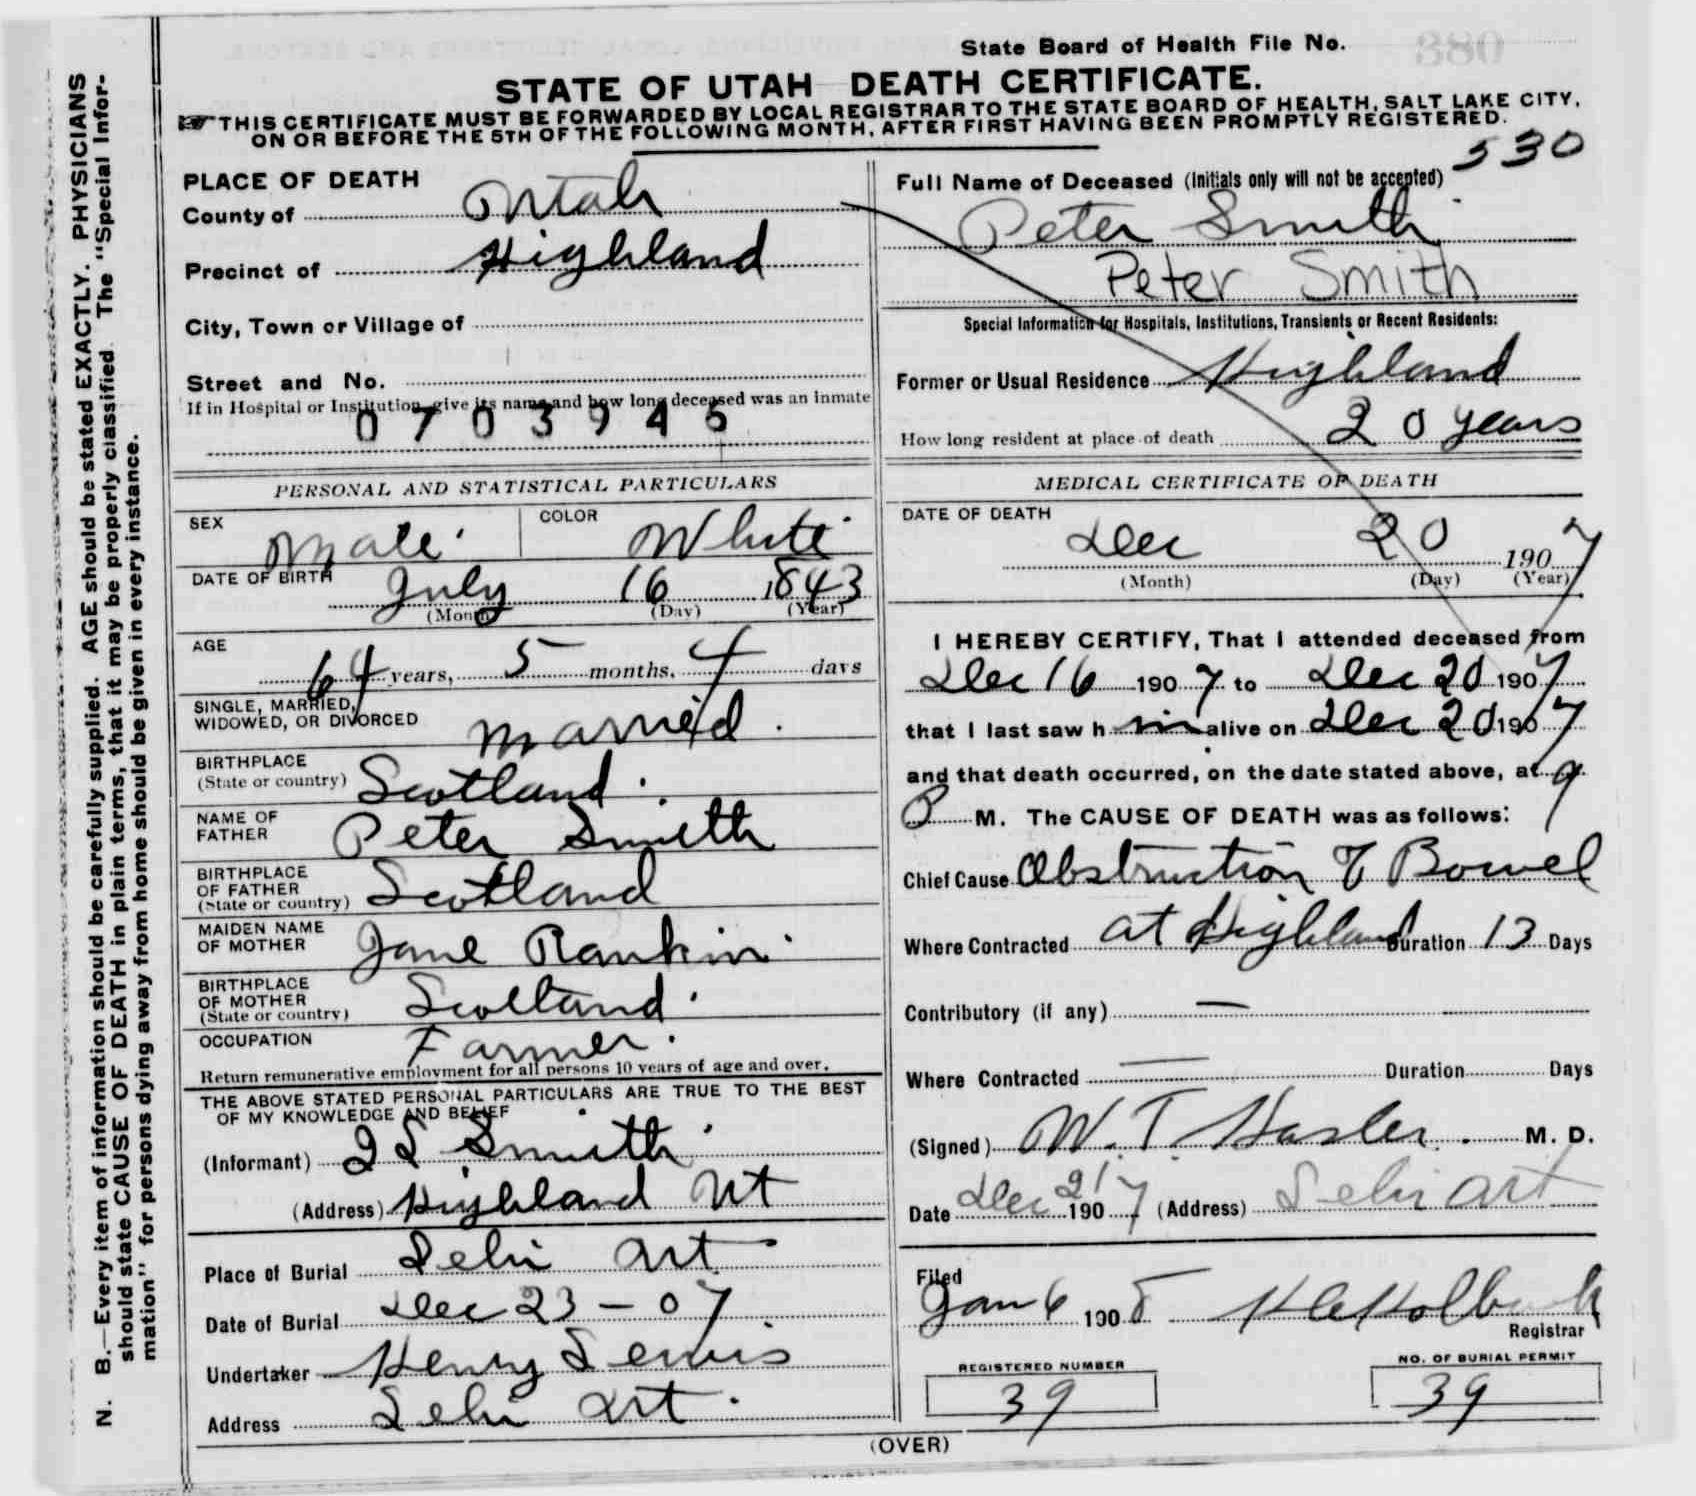 State Board of Health File No.
STATE OF UTAH DEATH CERTIFICATE.
THIS CERTIFICATE MUST BE FORWARDED BY LOCAL REGISTRAR TO THE STATE BOARD OF HEALTH, SALT LAKE CITY,
ON OR BEFORE THE 5TH OF THE FOLLOWING MONTH, AFTER FIRST HAVING BEEN PROMPTLY REGISTERED.
530
N. B.—Every item of information should be carefully supplied. AGE should be stated EXACTLY. PHYSICIANS
should state CAUSE OF DEATH in plain terms, that it may be properly classified. The "Special Infor-
mation" for persons dying away from home should be given in every instance.
PLACE OF DEATH
County of Utah
Precinct of Highland
City, Town or Village of
Street and No.
If in Hospital or Institution, give its name and how long deceased was an inmate
0703945
PERSONAL AND STATISTICAL PARTICULARS
SEX Male COLOR White
DATE OF BIRTH July 16 1843
(Month) (Day) (Year)
AGE 64 years, 5 months, 4 days
SINGLE, MARRIED,
WIDOWED, OR DIVORCED Married
BIRTHPLACE
(State or country) Scotland
NAME OF
FATHER Peter Smith
BIRTHPLACE
OF FATHER
(State or country) Scotland
MAIDEN NAME
OF MOTHER Jane Rankin
BIRTHPLACE
OF MOTHER
(State or country) Scotland
OCCUPATION Farmer
Return remunerative employment for all persons 10 years of age and over.
THE ABOVE STATED PERSONAL PARTICULARS ARE TRUE TO THE BEST
OF MY KNOWLEDGE AND BELIEF
(Informant) Smith
(Address) Highland Ut
Place of Burial Lehi Ut
Date of Burial Dec 23-07
Undertaker Henry Lewis
Address Lehi Ut
Full Name of Deceased (Initials only will not be accepted)
Peter Smith
Peter Smith
Special Information for Hospitals, Institutions, Transients or Recent Residents:
Former or Usual Residence Highland
How long resident at place of death 20 years
MEDICAL CERTIFICATE OF DEATH
DATE OF DEATH
Dec 20 1907
(Month) (Day) (Year)
I HEREBY CERTIFY, That I attended deceased from
Dec 16 1907 to Dec 20 1907
that I last saw h im alive on Dec 20 1907
and that death occurred, on the date stated above, at 9
P M. The CAUSE OF DEATH was as follows:
Chief Cause Obstruction of Bowel
Where Contracted at Highland Duration 13 Days
Contributory (if any) —
Where Contracted — Duration Days
(Signed) W. T. Hasler. M. D.
Date Dec 21 1907 (Address) Lehi Ut
Filed
Jan 6 1908
Registrar
REGISTERED NUMBER
39
NO. OF BURIAL PERMIT
39
(OVER)